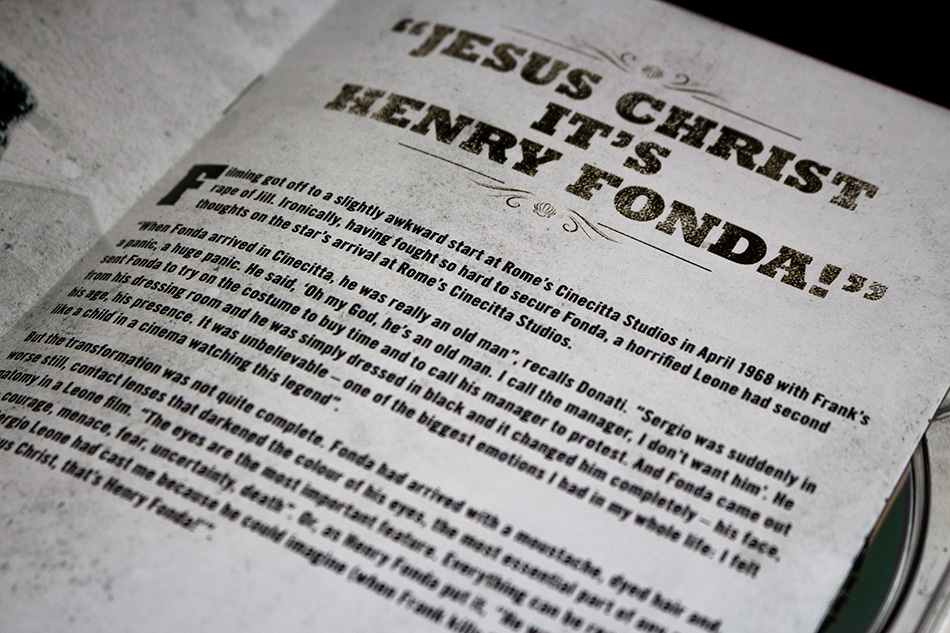 “JESUS CHRIST
IT’S
HENRY FONDA!”
Filming got off to a slightly awkward start at Rome’s Cinecitta Studios in April 1968 with Frank’s
rape of Jill. Ironically, having fought so hard to secure Fonda, a horrified Leone had second
thoughts on the star’s arrival at Rome’s Cinecitta Studios.
“When Fonda arrived in Cinecitta, he was really an old man”, recalls Donati. “Sergio was suddenly in
a panic, a huge panic. He said, ‘Oh my God, he’s an old man. I call the manager, I don’t want him’. He
sent Fonda to try on the costume to buy time and to call his manager to protest. And Fonda came out
from his dressing room and he was simply dressed in black and it changed him completely – his face,
his age, his presence. It was unbelievable – one of the biggest emotions I had in my whole life. I felt
like a child in a cinema watching this legend”.
But the transformation was not quite complete. Fonda had arrived with a moustache, dyed hair and,
worse still, contact lenses that darkened the colour of his eyes, the most essential part of any
in a Leone film. “The eyes are the most important feature. Everything can be
courage, menace, fear, uncertainty, death”. Or, as Henry Fonda put it, “He
Leone had cast me because he could imagine (when Frank
Christ, that’s Henry Fonda!’”